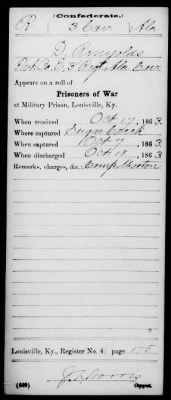 (Confederate.)
R 3 Cav. Ala.
J Reynolds
Pvt. Co. E 3 Regt Ala Cav
Appears on a roll of
Prisoners of War
at Military Prison, Louisville, Ky.
When received Oct 17, 1863
Where captured Sugar Creek
When captured Oct 9, 1863
When discharged Oct 18, 1863
Remarks, charges, &c. Camp Morton
Louisville, Ky., Register No. 4; page 175
(639) Copyist.